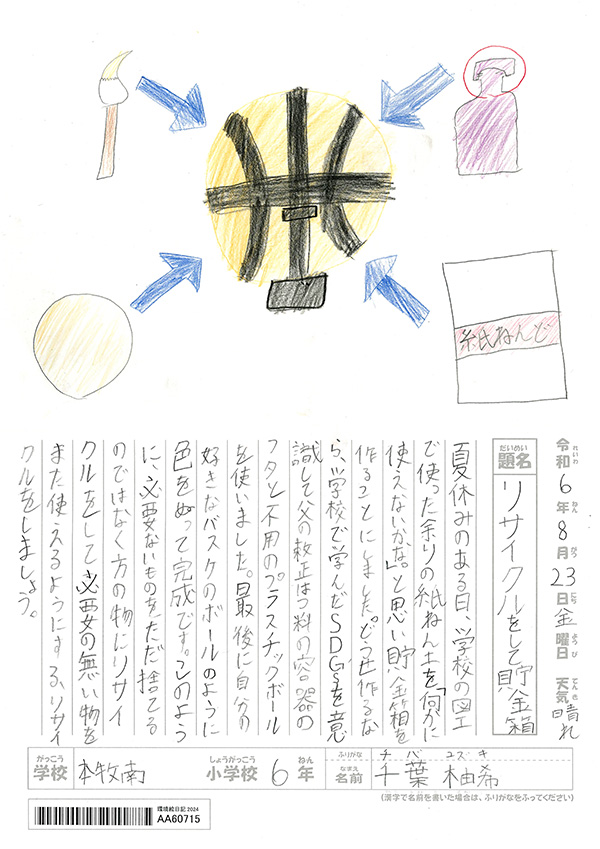 紙ねんど
令和6年8月23日金曜日 天気 晴れ
れいわ ねん がつ にち ようび てんき
だいめい
題名 リサイクルをして貯金箱
夏休みのある日、学校の図工
で使った余りの紙ねん土を「何かに
使えないかな。」と思い貯金箱を
作ることにしました。どうせ作るな
ら、学校で学んだSDGsを意
識して父の
容器の
フタと不用のプラスチックボール
を使いました。最後に自分の
好きなバスケのボールのように
色をぬって完成です。このよう
に、必要ないものをただ捨てる
のではなく方の物にリサイ
クルをして必要の無い物を
また使えるようにする、リサイ
クルをしましょう。
がっこう しょうがっこう ねん
学校 本牧南 小学校 6年
ふりがな チバ ユズキ
なまえ
名前 千葉 柚希
(漢字で名前を書いた場合は、ふりがなをふってください)
環境絵日記2024
AA60715